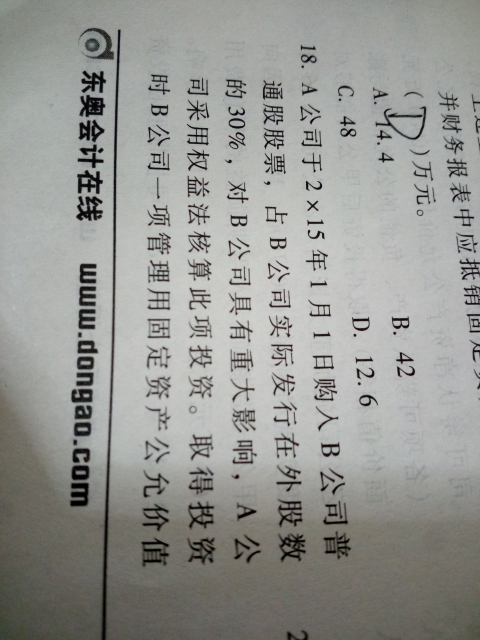 并财务报表中应抵销固定资
( D )万元。
A. 14.4 B. 42
C. 48 D. 12.6
18. A公司于2×15年1月1日购入B公司普
通股股票，占B公司实际发行在外股数
的30%，对B公司具有重大影响，A公
司采用权益法核算此项投资。取得投资
时B公司一项管理用固定资产公允价值
东奥会计在线 www.dongao.com